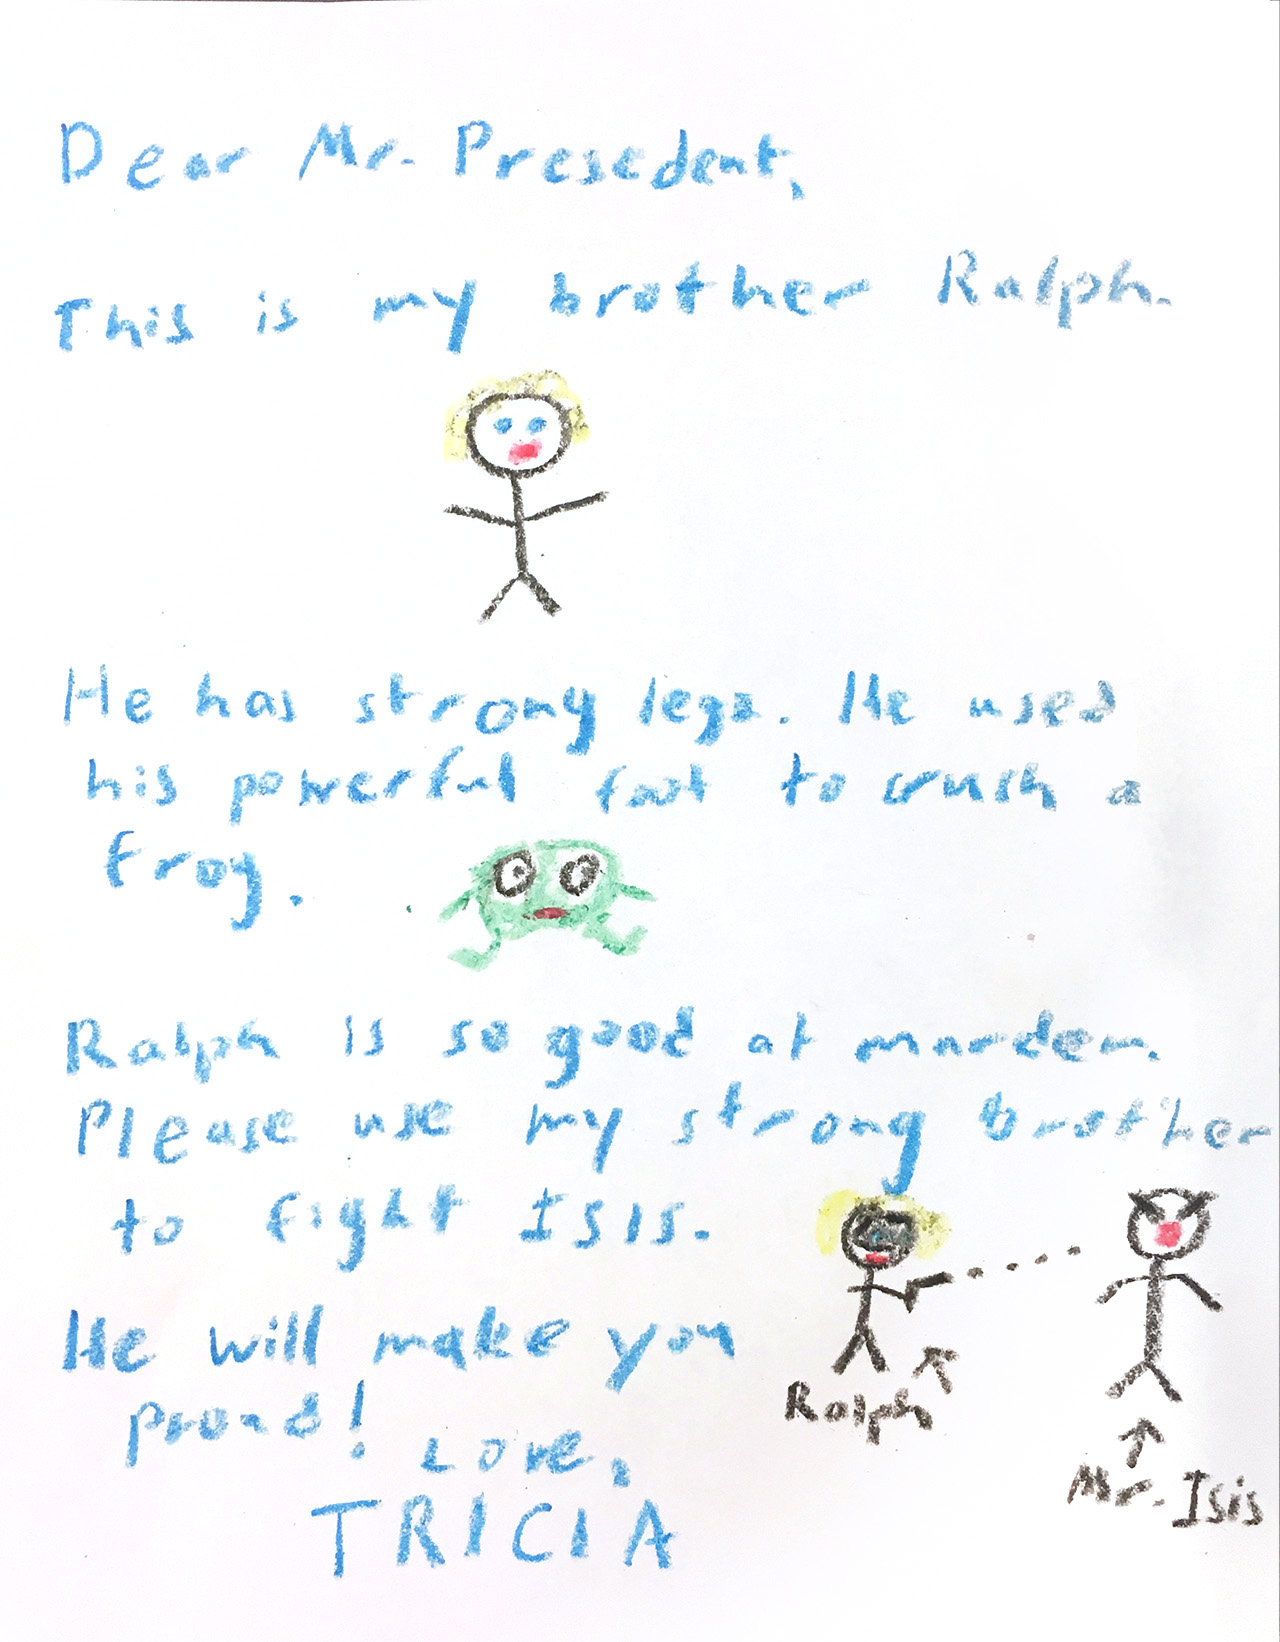 Dear Mr. Presedent,
This is my brother Ralph.
He has strong legs. He used
his powerful foot to crush a
frog.
Ralph is so good at murder.
Please use my strong brother
to fight ISIS.
He will make you
proud!
Love,
TRICIA
Ralph
Mr. Isis